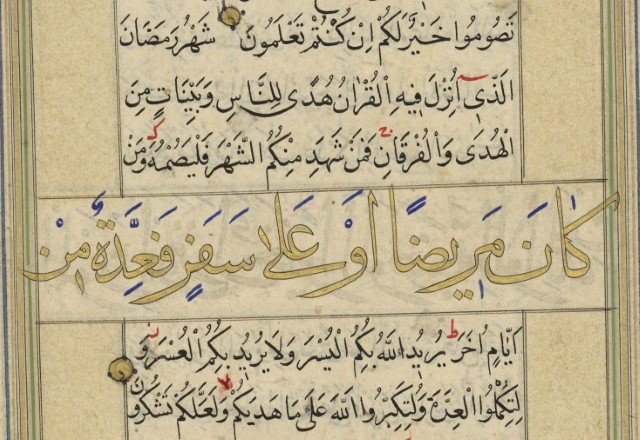 تَصُومُوا خَيْرٌ لَكُمْ اِنْ كُنْتُمْ تَعْلَمُونَ شَهْرُ رَمَضَانَ
الَّذٖى اُنْزِلَ فٖيهِ الْقُرْاٰنُ هُدًى لِلنَّاسِ وَبَيِّنَاتٍ مِنَ
الْهُدَى وَالْفُرْقَانِ ج فَمَنْ شَهِدَ مِنْكُمُ الشَّهْرَ فَلْيَصُمْهُ وَمَنْ
كَانَ مَرٖيضًا اَوْ عَلَى سَفَرٍ فَعِدَّةٌ مِنْ
اَيَّامٍ اُخَرَ ط يُرٖيدُ اللّٰهُ بِكُمُ الْيُسْرَ وَلَا يُرٖيدُ بِكُمُ الْعُسْرَ وَ
لِتُكْمِلُوا الْعِدَّةَ وَلِتُكَبِّرُوا اللّٰهَ عَلَى مَا هَدٰيكُمْ وَلَعَلَّكُمْ تَشْكُرُونَ